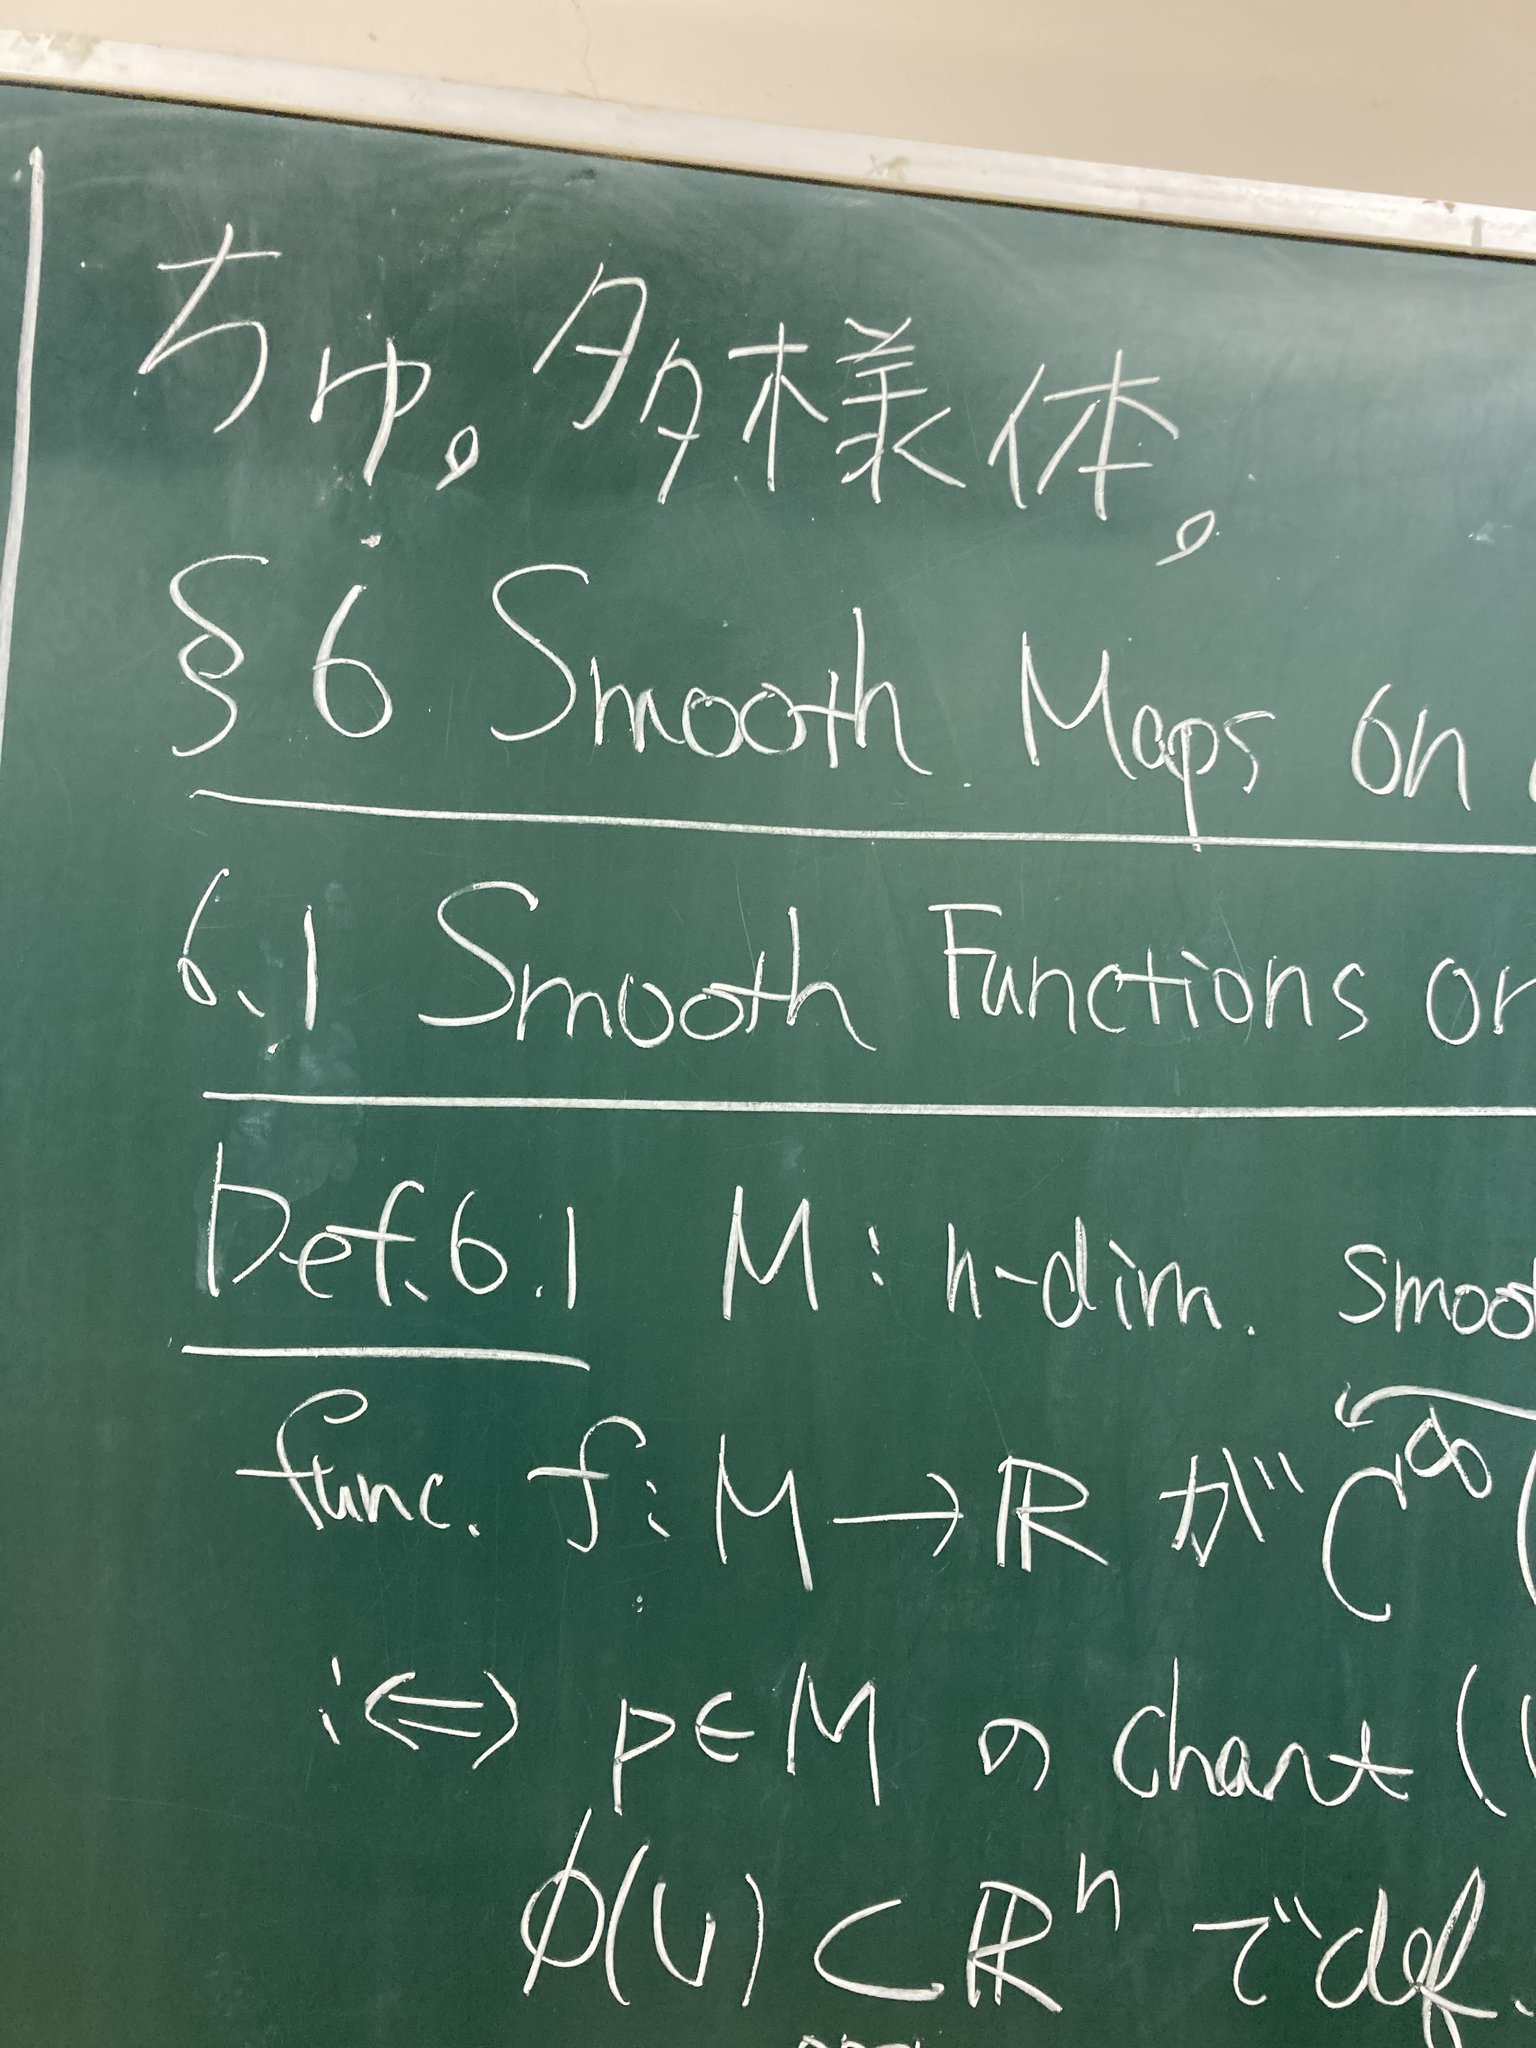 ちゅ。多様体。
§6 Smooth Maps on
6.1 Smooth Functions on
Def.6.1 M: n-dim. smoo
func. f: M → ℝ が C^∞ (
:⇔ p∈M の chart (
φ(U) ⊂ ℝ^n で def.